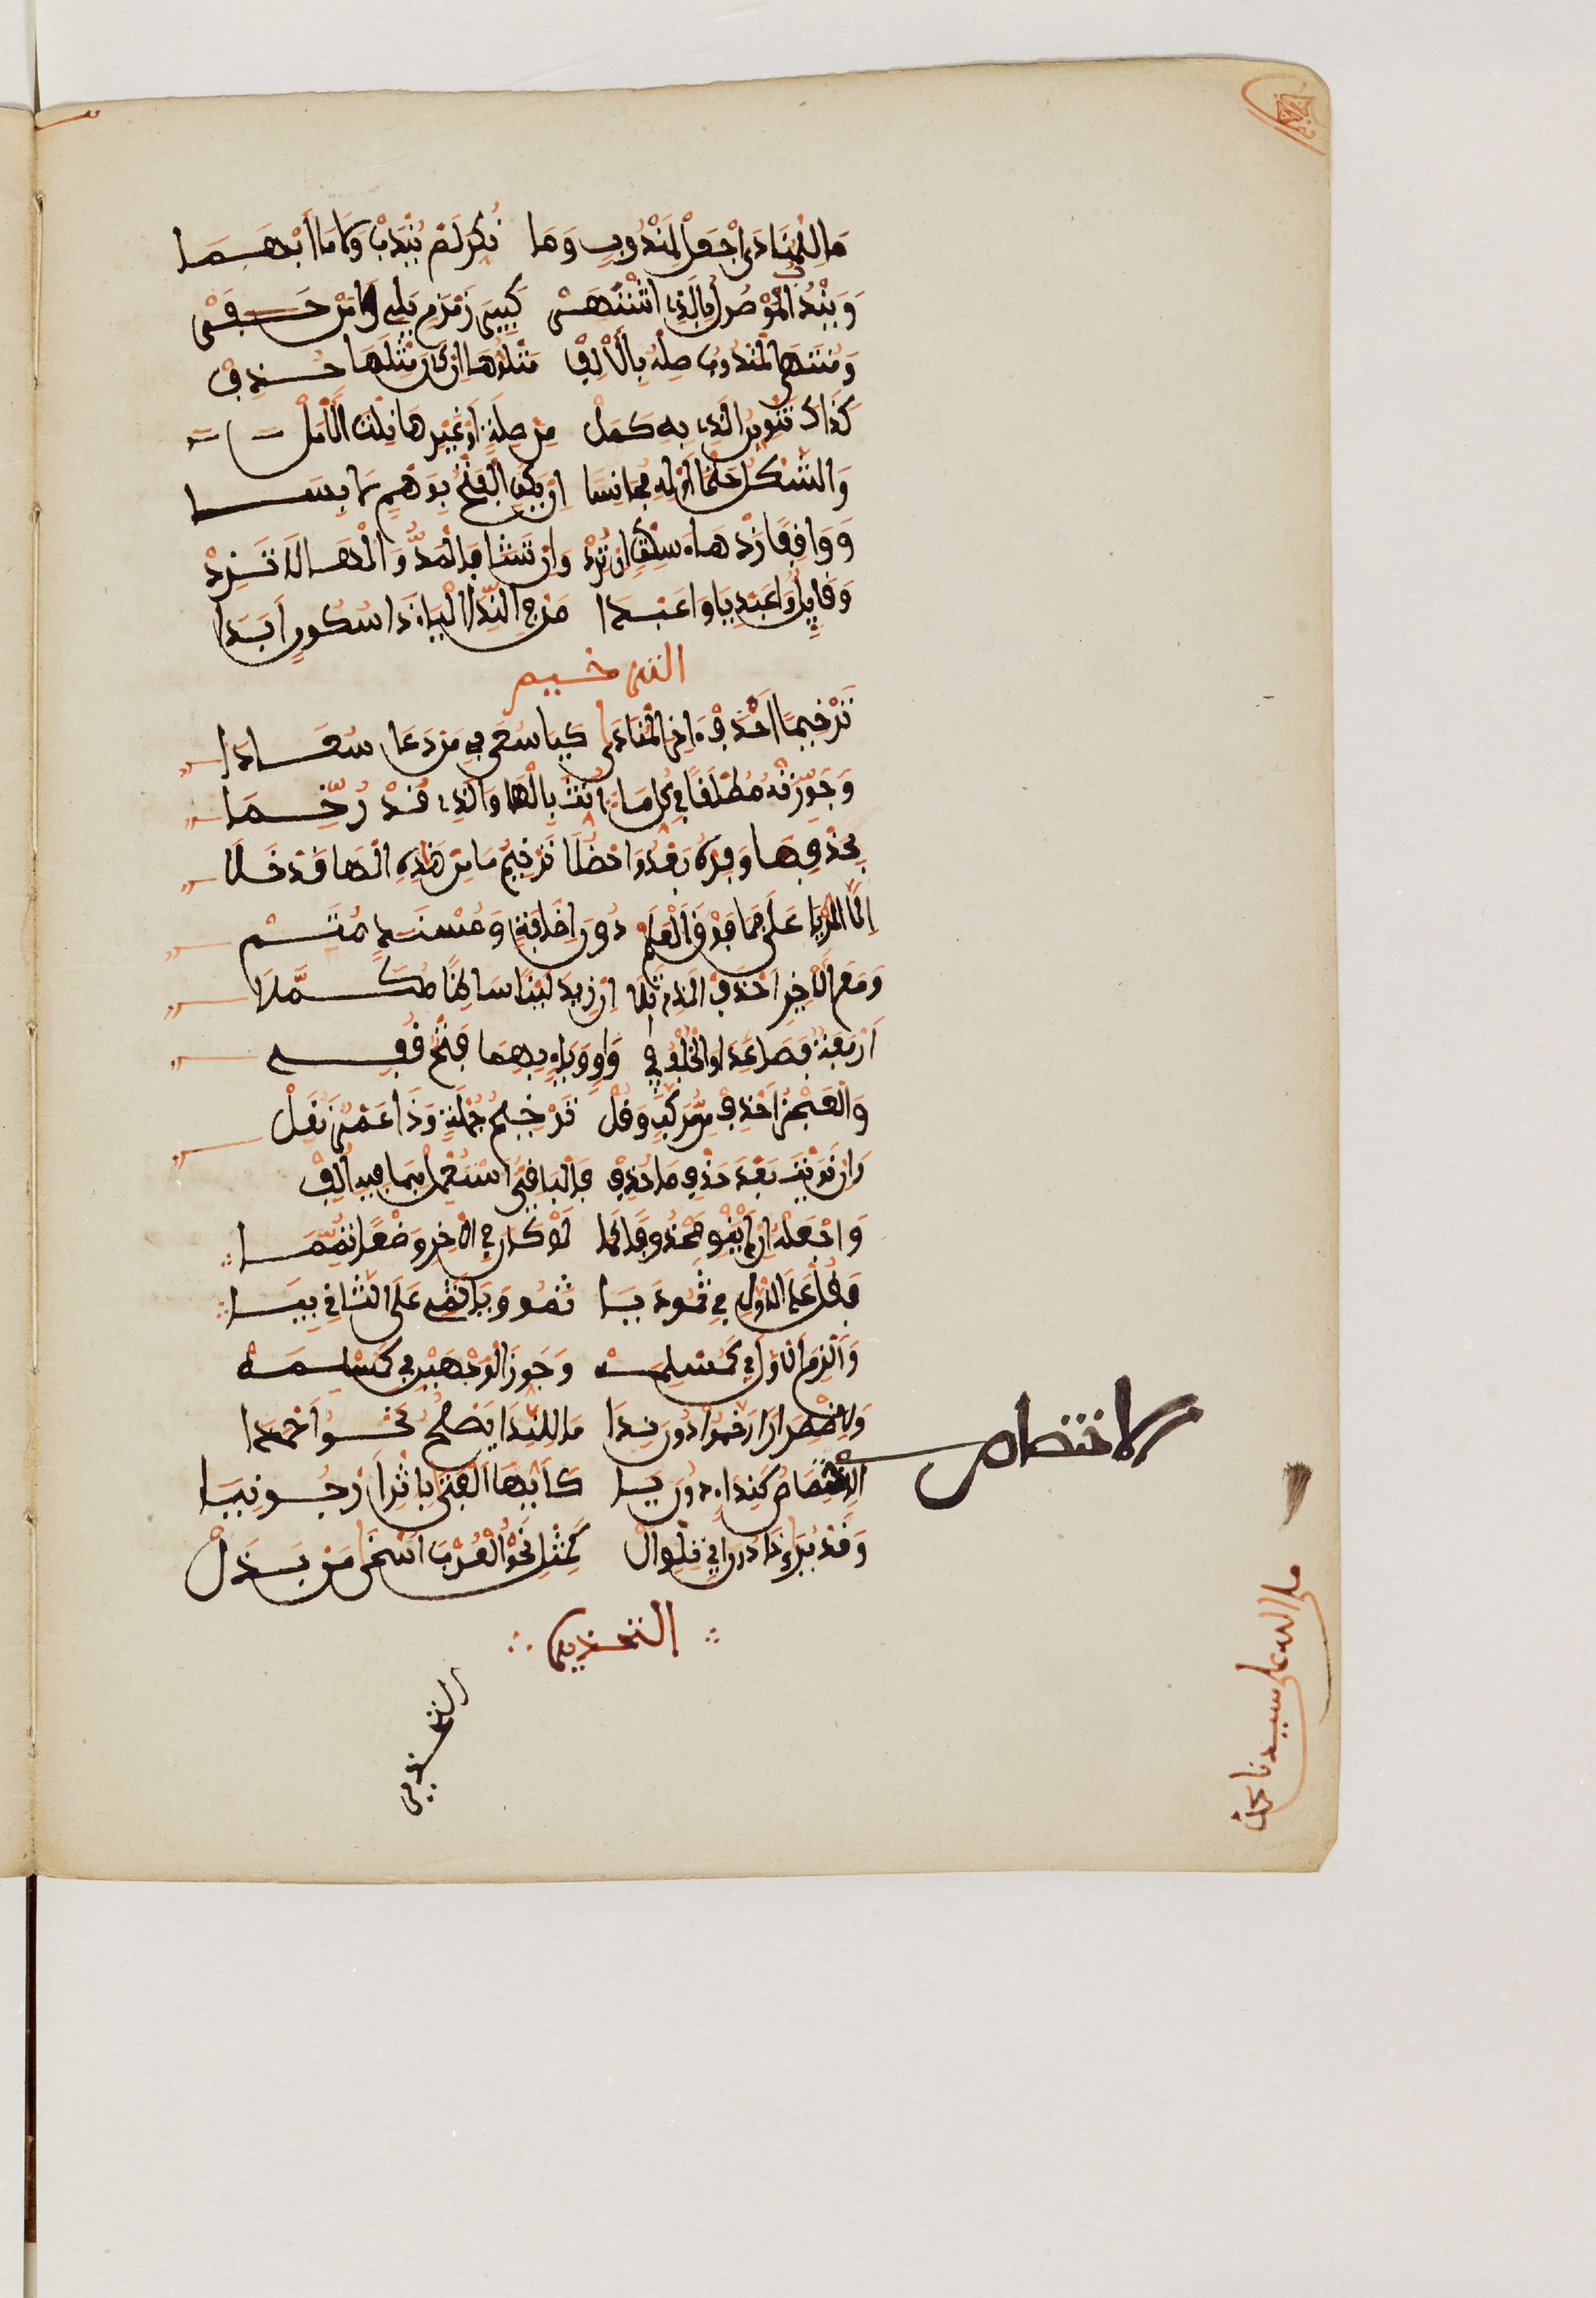 مَا لِلْمُنَادَى اجْعَلْ لِمَنْدُوبٍ وَمَا نُكِّرَ لَمْ يُنْدَبْ وَلَا مَا أُبْهِمَا
وَيُنْدَبُ الْمَوْصُولُ بِالَّذِي اشْتَهَرْ كَبِيرَ زَمْزَمٍ يَلِي وَا مَنْ حَفَرْ
وَمُنْتَهَى الْمَنْدُوبِ صِلْهُ بِالْأَلِفْ مَتْلُوُّهَا إِنْ كَانَ مِثْلَهَا حُذِفْ
كَذَاكَ تَنْوِينُ الَّذِي بِهِ كَمَلْ مِنْ صِلَةٍ أَوْ غَيْرِهَا نِلْتَ الْأَمَلْ
وَالشَّكْلَ حَتْمًا أَوْلِهِ مُجَانِسَا إِنْ يَكُنِ الْفَتْحُ بِوَهْمٍ لَابِسَا
وَوَاقِفًا زِدْ هَاءَ سَكْتٍ إِنْ تُرِدْ وَإِنْ تَشَأْ فَالْمَدُّ وَالْهَا لَا تَزِدْ
وَقَائِلٌ وَاعَبْدِيَا وَاعَبْدَا مَنْ فِي النِّدَا الْيَا ذَا سُكُونٍ أَبْدَا
الترخيم
تَرْخِيمًا احْذِفْ آخِرَ الْمُنَادَى كَيَا سُعَى فِي مَنْ دَعَا سُعَادَا
وَجَوِّزَنْهُ مُطْلَقًا فِي كُلِّ مَا أُنِّثَ بِالْهَا وَالَّذِي قَدْ رُخِّمَا
بِحَذْفِهَا وَفِّرْهُ بَعْدُ وَاحْظُلَا تَرْخِيمَ مَا مِنْ هَذِهِ الْهَا قَدْ خَلَا
إِلَّا الرُّبَاعِيَّ فَمَا فَوْقُ الْعَلَمْ دُونَ إِضَافَةٍ وَمُسْنَدٍ مُتَمْ
وَمَعَ الْآخِرِ احْذِفِ الَّذِي تَلَا إِنْ زِيدَ لَيْنًا سَاكِنًا مُكَمِّلَا
أَرْبَعَةً فَصَاعِدًا وَالْخُلْفُ فِي وَاوٍ وَيَاءٍ بِهِمَا فَتْحٌ قُفِي
وَالْعَجُزَ احْذِفْ مِنْ مُرَكَّبٍ وَقَلْ تَرْخِيمُ جُمْلَةٍ وَذَا عَمْرٌو نَقَلْ
وَإِنْ نَوَيْتَ بَعْدَ حَذْفٍ مَا حُذِفْ فَالْبَاقِيَ اسْتَعْمِلْ بِمَا فِيهِ أُلِفْ
وَاجْعَلْهُ إِنْ لَمْ يُنْوَ مَحْذُوفٌ كَمَا لَوْ كَانَ فِي الْآخِرِ وَضْعًا تُمِّمَا
فَقُلْ عَلَى الْأَوَّلِ فِي ثَمُودَ يَا ثَمُو وَيَا ثَمِي عَلَى الثَّانِي بِيَا
وَالْتَزِمِ الْأَوَّلَ فِي كَمُسْلِمَهْ وَجَوِّزِ الْوَجْهَيْنِ فِي كَمَسْلَمَهْ
وَلِاضْطِرَارٍ رَخَّمُوا دُونَ نِدَا مَا لِلنِّدَا يَصْلُحُ نَحْوُ أَحْمَدَا
الاختصاص
الِاخْتِصَاصُ كَنِدَاءٍ دُونَ يَا كَأَيُّهَا الْفَتَى بِإِثْرِ ارْجُونِيَا
وَقَدْ يُرَى ذَا دُونَ أَيٍّ تِلْوَ أَلْ كَمِثْلِ نَحْنُ الْعُرْبَ أَسْخَى مَنْ بَذَلْ
التحذير
التحذير
صلى الله على سيدنا محمد